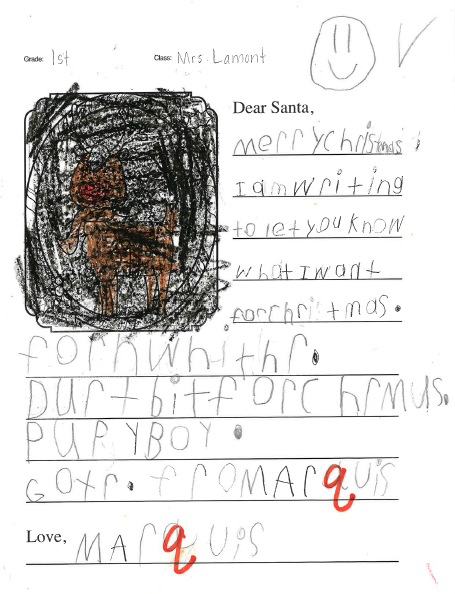 Grade: 1st Class: Mrs. Lamont
Dear Santa,
merry christmas
I am writing
to let you know
what I want
for chritmas.
fornwhithr.
Durtbit forc hrmus.
PURYBOY.
Goyr. froMArquis
Love, MArquis